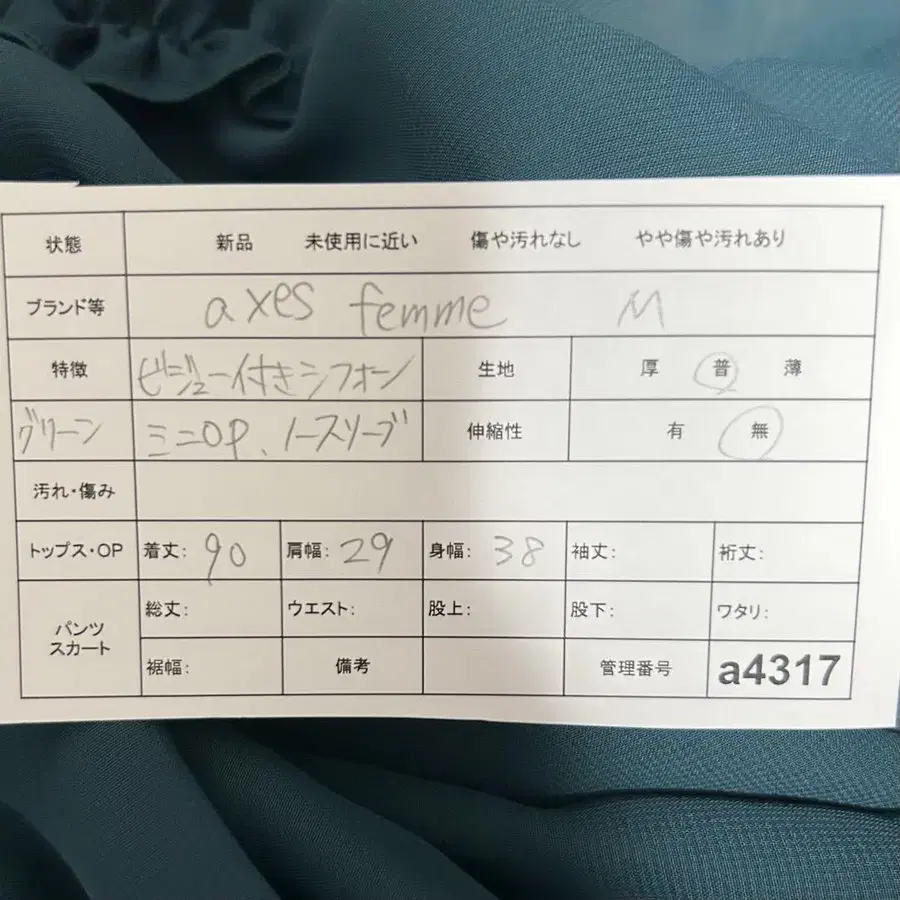 状態 新品 未使用に近い 傷や汚れなし やや傷や汚れあり
ブランド等 axes femme M
特徴 ビジュー付きシフォン 生地 厚 普 薄
グリーン ミニOP、ノースリーブ 伸縮性 有 無
汚れ・傷み
トップス・OP 着丈: 90 肩幅: 29 身幅: 38 袖丈: 裄丈:
パンツ スカート 総丈: ウエスト: 股上: 股下: ワタリ:
裾幅: 備考 管理番号 a4317